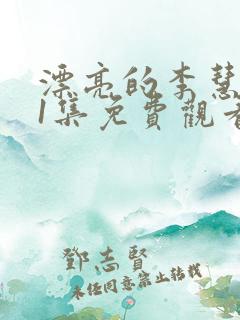 漂亮的李慧
1集免費觀看
鄧志賢
未任同意禁止转载